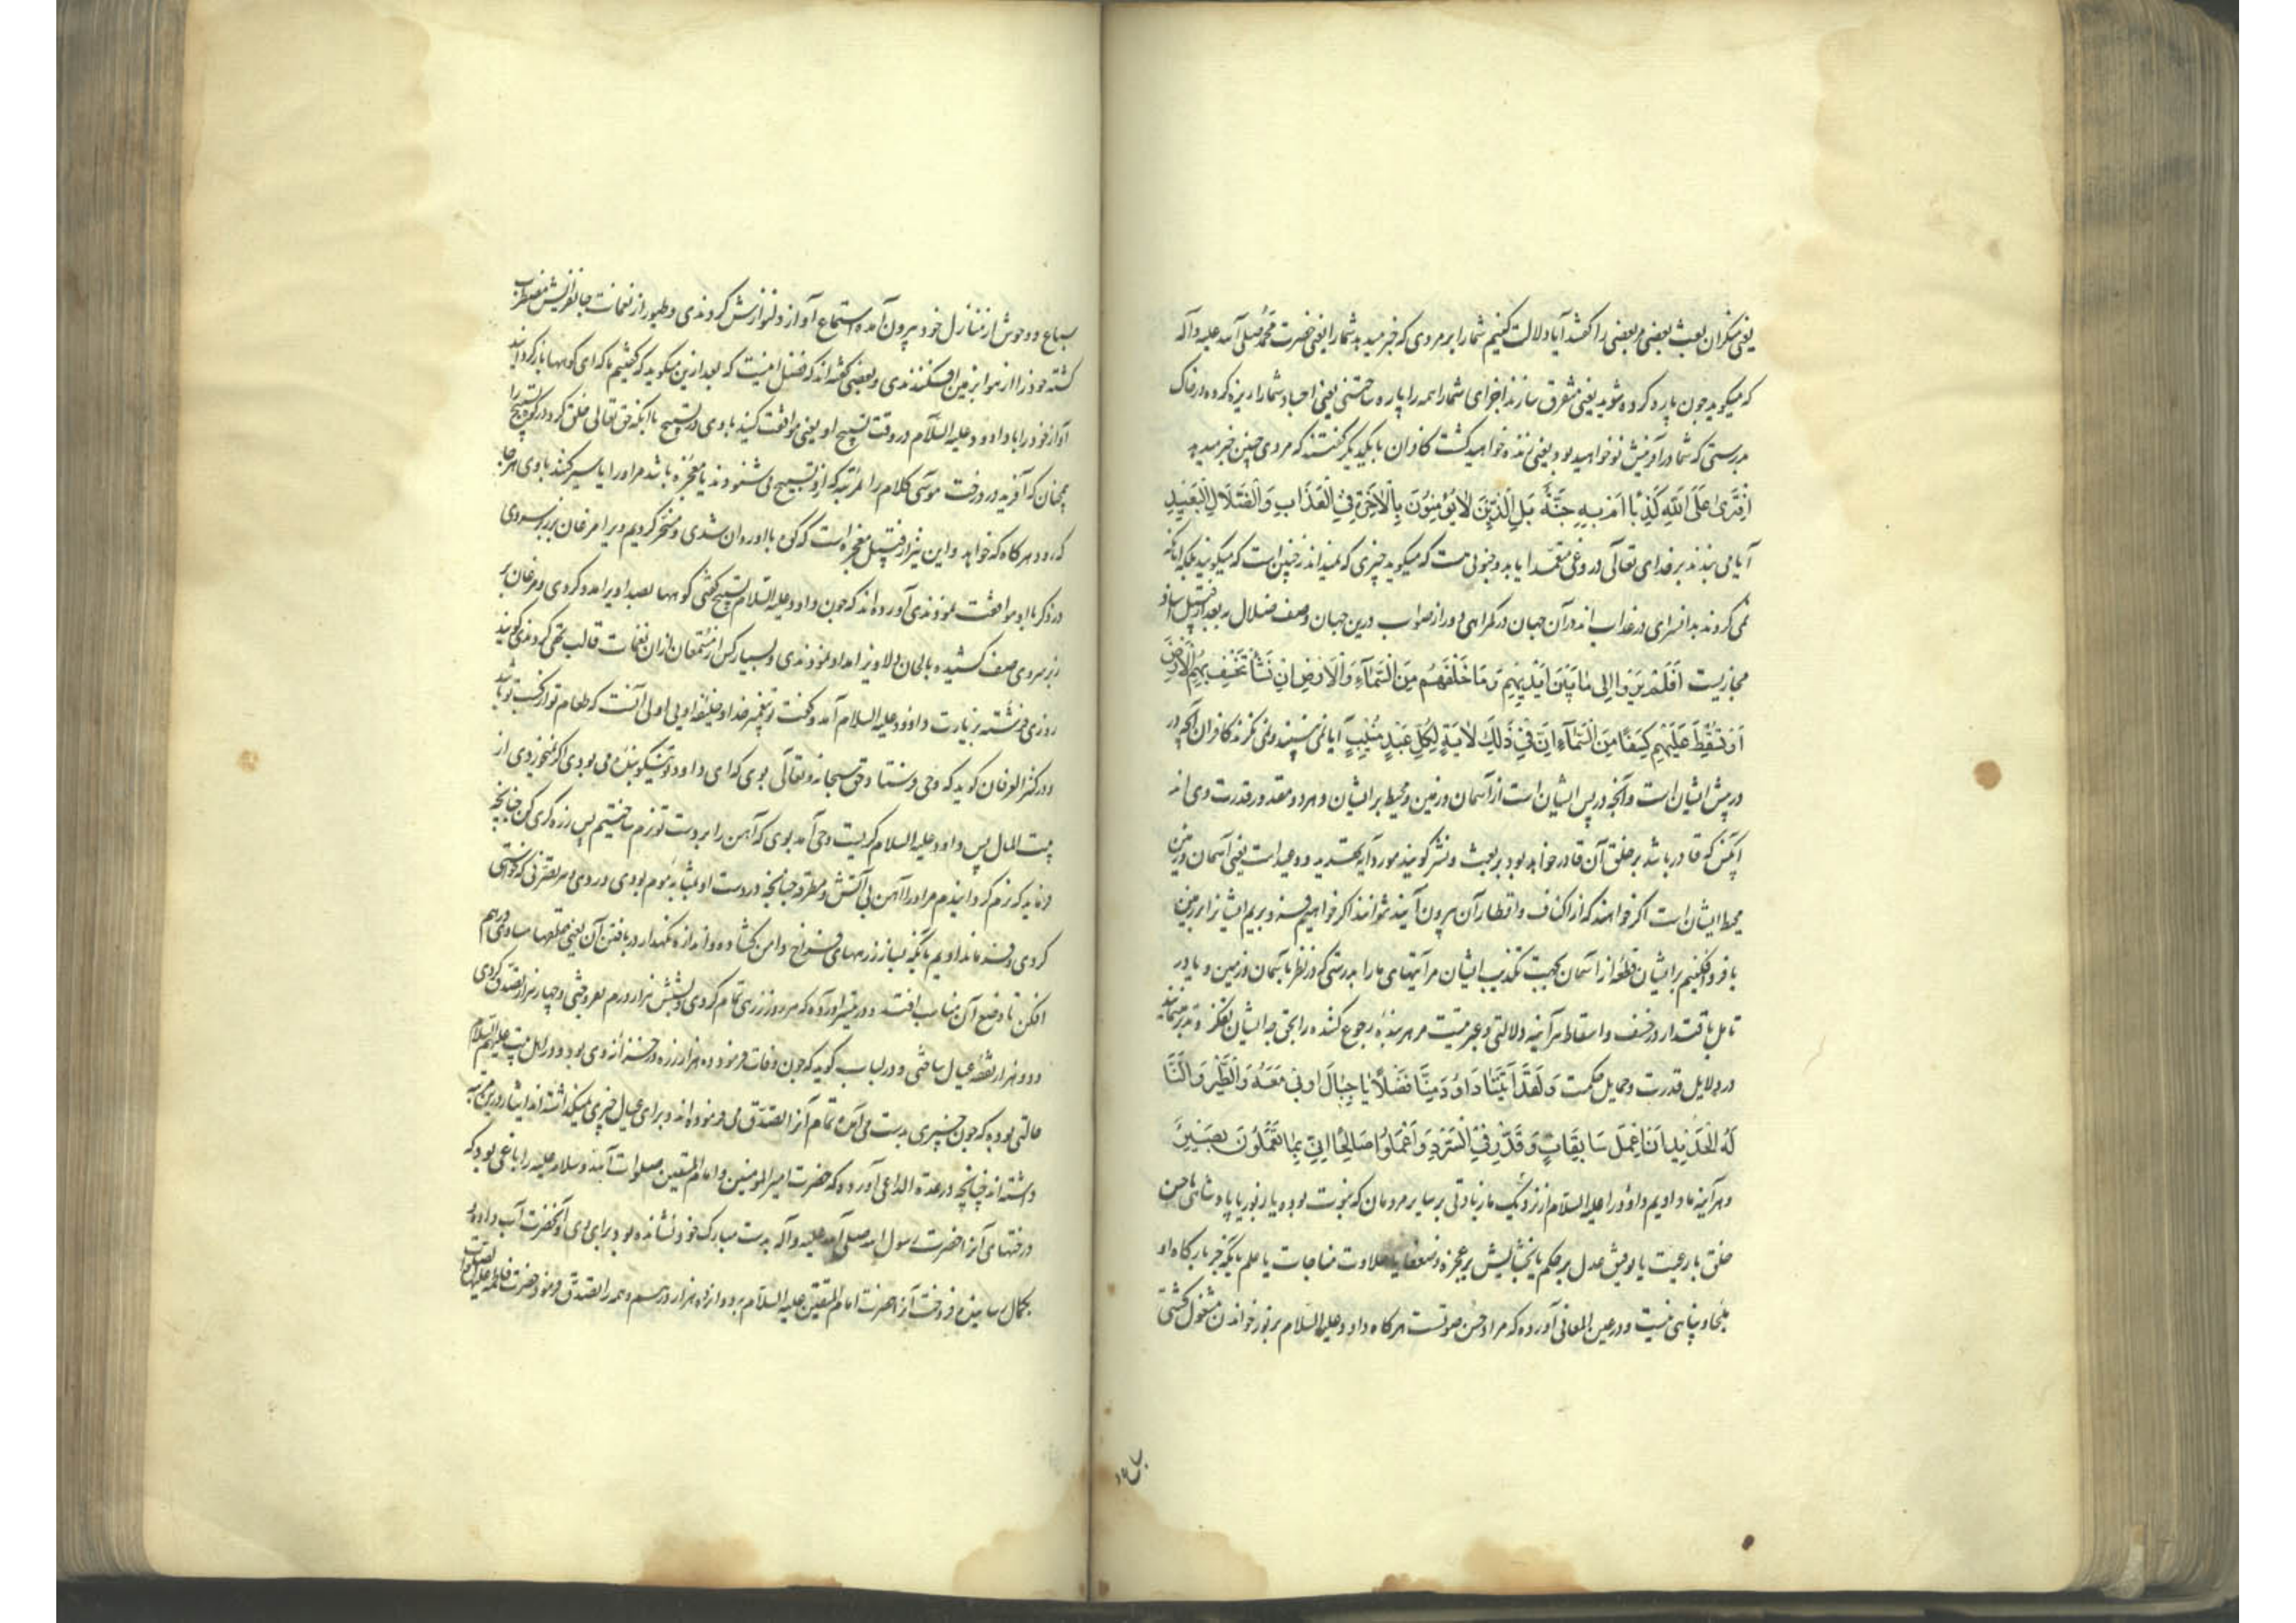 یعنی منکران بعث بعضی مر بعضی را گفتند آیا دلالت کنیم شما را بر مردی که خبر میدهد شما را یعنی حضرت محمد صلی الله علیه وآله
که میگوید چون پاره کرده شوید یعنی متفرق سازند اجزای شما را همه را پاره ساختنی یعنی اجساد شما را ریزه کرده در خاک
بدرستی که شما در آفرینش نو خواهید بود یعنی زنده خواهید گشت کافران با یکدیگر گفتند که مردی چنین خبر میدهد
اَفْتَرٰی عَلَی اللّٰهِ کَذِبًا اَمْ بِهِ جِنَّةٌ بَلِ الَّذِیْنَ لَا یُؤْمِنُوْنَ بِالْاٰخِرَةِ فِی الْعَذَابِ وَالضَّلَالِ الْبَعِیْدِ
آیا می بندد بر خدای تعالی دروغی متعمدا یا بدو جنونی هست که میگوید چیزی که نمیداند نچنین است که میگویند بلکه آنانکه
نمی گروند بدانسرای در عذاب اند در آن جهان و در گمراهی دور از صواب درین جهان وصف ضلال به بعد از قبیل اسناد
مجازیست اَفَلَمْ یَرَوْا اِلٰی مَا بَیْنَ اَیْدِیْهِمْ وَمَا خَلْفَهُمْ مِنَ السَّمَاءِ وَالْاَرْضِ اِنْ نَشَأْ نَخْسِفْ بِهِمُ الْاَرْضَ
اَوْ نُسْقِطْ عَلَیْهِمْ کِسَفًا مِنَ السَّمَاءِ اِنَّ فِیْ ذٰلِکَ لَاٰیَةً لِکُلِّ عَبْدٍ مُنِیْبٍ آیا نمی بینند و نمی نگرند کافران آنچه در
در پیش ایشان است و آنچه در پس ایشان است از آسمان و زمین و محیط بر ایشان و هر دو مقدور قدرت وی اند
آنکس که قادر باشد بر خلق آن قادر خواهد بود بر بعث و نشر گویند مورد آیه تهدید و وعید است یعنی آسمان و زمین
محیط ایشان است اگر خواهند که از اکناف و اقطار آن بیرون آیند نتوانند اگر خواهیم فرو بریم ایشانرا بزمین
یا فرو افکنیم بر ایشان قطعه از آسمان بجهت تکذیب ایشان مر آیتهای ما را بدرستی که در نظر بآسمان و زمین و یا در
تامل باقتدار در خسف و اسقاط هر آینه دلالتی و عبرتیست مر هر بنده رجوع کننده را بحق چه ایشان تفکر و تدبر
در دلایل قدرت و حکمت وَلَقَدْ اٰتَیْنَا دَاوُدَ مِنَّا فَضْلًا یَا جِبَالُ اَوِّبِیْ مَعَهُ وَالطَّیْرَ وَاَلَنَّا
لَهُ الْحَدِیْدَ اَنِ اعْمَلْ سَابِغَاتٍ وَقَدِّرْ فِی السَّرْدِ وَاعْمَلُوا صَالِحًا اِنِّیْ بِمَا تَعْمَلُوْنَ بَصِیْرٌ
و هر آینه ما دادیم داود را علیه السلام از نزدیک ما زیادتی بر سایر مردمان که نبوت بوده یا زبور یا پادشاهی یا حسن
خلق با رعیت یا توفیق عدل بر حکم یا بخشایش بر عجزه و ضعفا یا حلاوت مناجات یا علم بآنکه جز بارگاه او
ملجا و پناهی نیست و در عین المعانی آورده که مراد حسن صوتست هر گاه داود علیه السلام بزبور خواندن مشغول گشتی
سباع و وحوش از منازل خود بیرون آمده استماع آواز دلنوازش کردندی و طیور از نغمات جانفزایش مضطرب
گشته خود را از هوا بزمین افکندندی و بعضی گفته اند که فضل اینست که بعد ازین میگوید که گفتیم ما که ای کوهها باز گردانید
آواز خود را با داود علیه السلام در وقت تسبیح او یعنی موافقت کنید با وی در تسبیح یا آنکه حق تعالی خلق کرد در کوه تسبیح را
همچنان که آفرید در درخت موسی کلام را بمرتبه که ازو تسبیح می شنودند یا معجزه باشد مر او را یا سیر کنند با وی هر جا
که رود هر گاه که خواهد و این نیز از قبیل معجزه است که کوه با او روان شدی و مسخر کردیم ویرا مرغان بر سر وی
در ذکر با او موافقت نمودندی آورده اند که چون داود علیه السلام تسبیح گفتی کوهها بصدا ویرا مدد کردی و مرغان بر
زبر سر وی صف کشیده بالحان دلاویز امداد نمودندی و بسیار کس از مستمعان از آن نغمات قالب تهی کردندی گویند
روزی فرشته بزیارت داود علیه السلام آمد و گفت تو پیغمبر خدا و خلیفه اویی اولی آنست که طعام تو از کسب تو باشد
و در کنز العرفان گوید که وحی فرستاد حق سبحانه و تعالی بوی که ای داود تو نیکو بنده می بودی اگر نخوردی از
بیت المال پس داود علیه السلام گریست وحی آمد بوی که آهن را بر دست تو نرم ساختیم پس زره گری کن چنانچه
فرماید که نرم گردانیدیم مر او را آهن بی آتش و مطرقه چنانچه در دست او بمثابه موم بودی و در وی هر تصرفی که خواستی
کردی و فرمان دادیم بآنکه بساز زرههای فراخ دامن کشاده و اندازه نگهدار در بافتن آن یعنی حلقها مساوی در هم
افکن تا وضع آن مناسب افتد و در تیسیر آورده که هر روز زرهی تمام کردی و بشش هزار درم بفروختی و چهار هزار تصدق کردی
و دو هزار نفقه عیال ساختی و در لباب گوید که چون وفات فرمود ده هزار زره در خزانه وی بود و در اهل بیت علیهم السلام
حالتی بوده که چون چیزی بدست می آمده تمام آنرا تصدق می فرموده اند و برای عیال چیزی نمیگذاشته اند
داشته اند چنانچه در عدة الداعی آورده که حضرت امیر المؤمنین و امام المتقین صلوات الله و سلامه علیه را باغی بود که
درختهای آنرا حضرت رسول الله صلی الله علیه وآله بدست مبارک خود نشانده بود برای وی و آنحضرت آب داده
بکمال رسانیده فروخت آنرا حضرت امام المتقین علیه السلام بدوازده هزار درهم و همه را تصدق فرمود حضرت فاطمه علیها